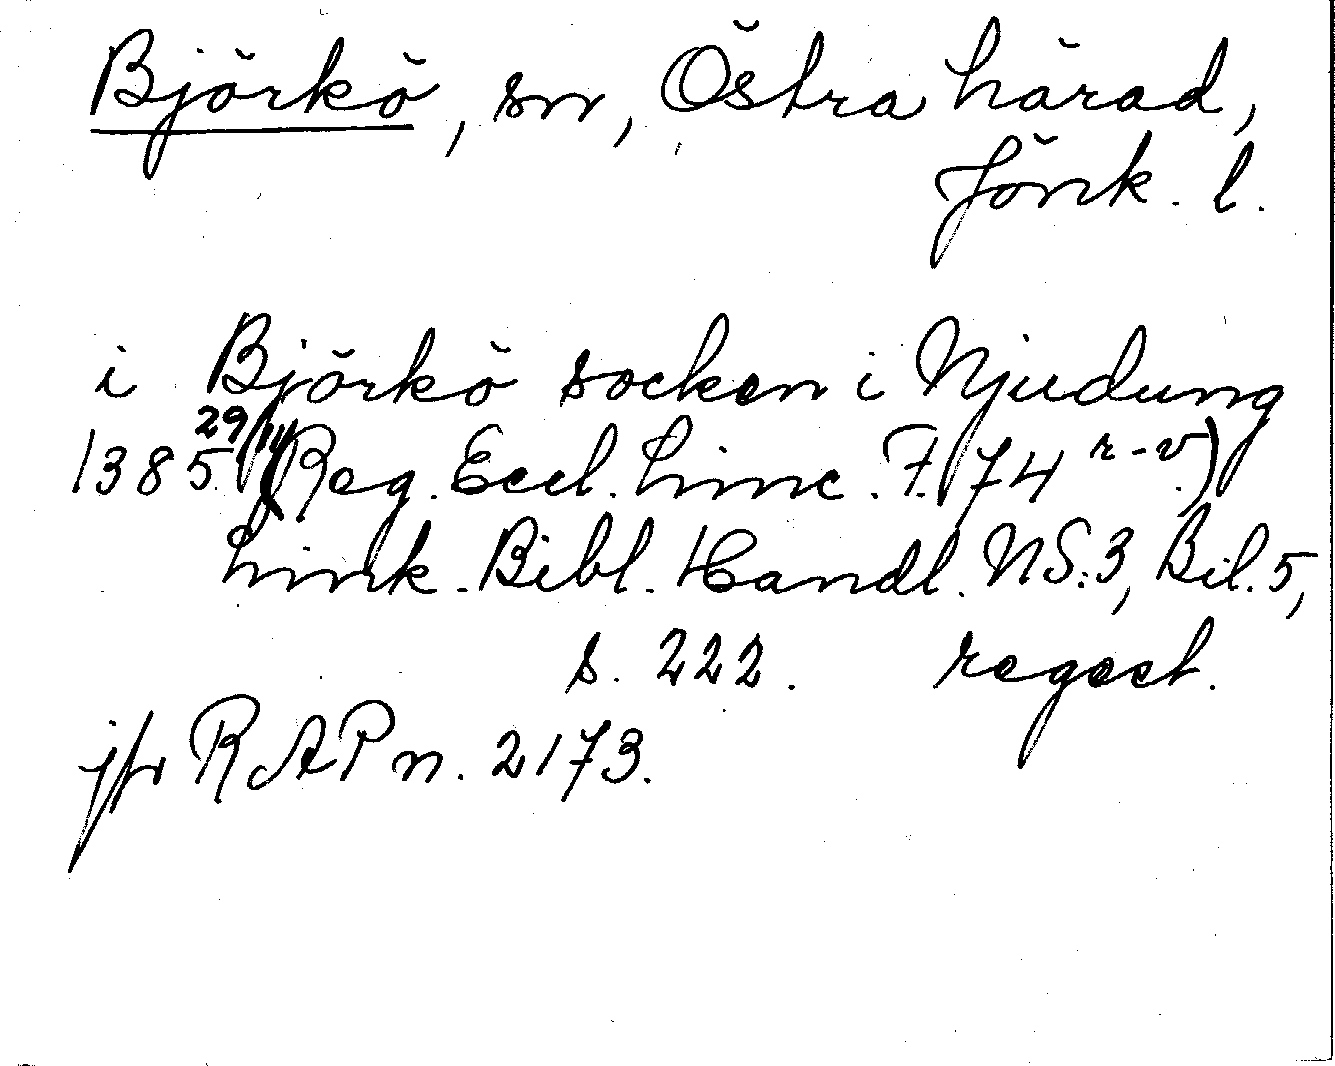 Björkö, sn, Östra härad,
Jönk. l.
i Björkö socken i Njudung
1385 29/11 (Reg. Eccl. Linc. F. 74 r-v.)
Link. Bibl. Handl. NS:3, Bil. 5,
s. 222. regest.
jfr RAP n. 2173.